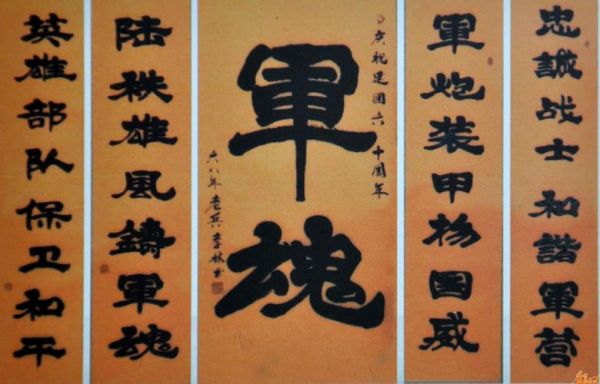 忠誠战士和諧軍营
軍炮装甲扬国威
庆祝建国六十周年
軍魂
六八年老兵李林书
陆秩雄風鑄軍魂
英雄部队保卫和平